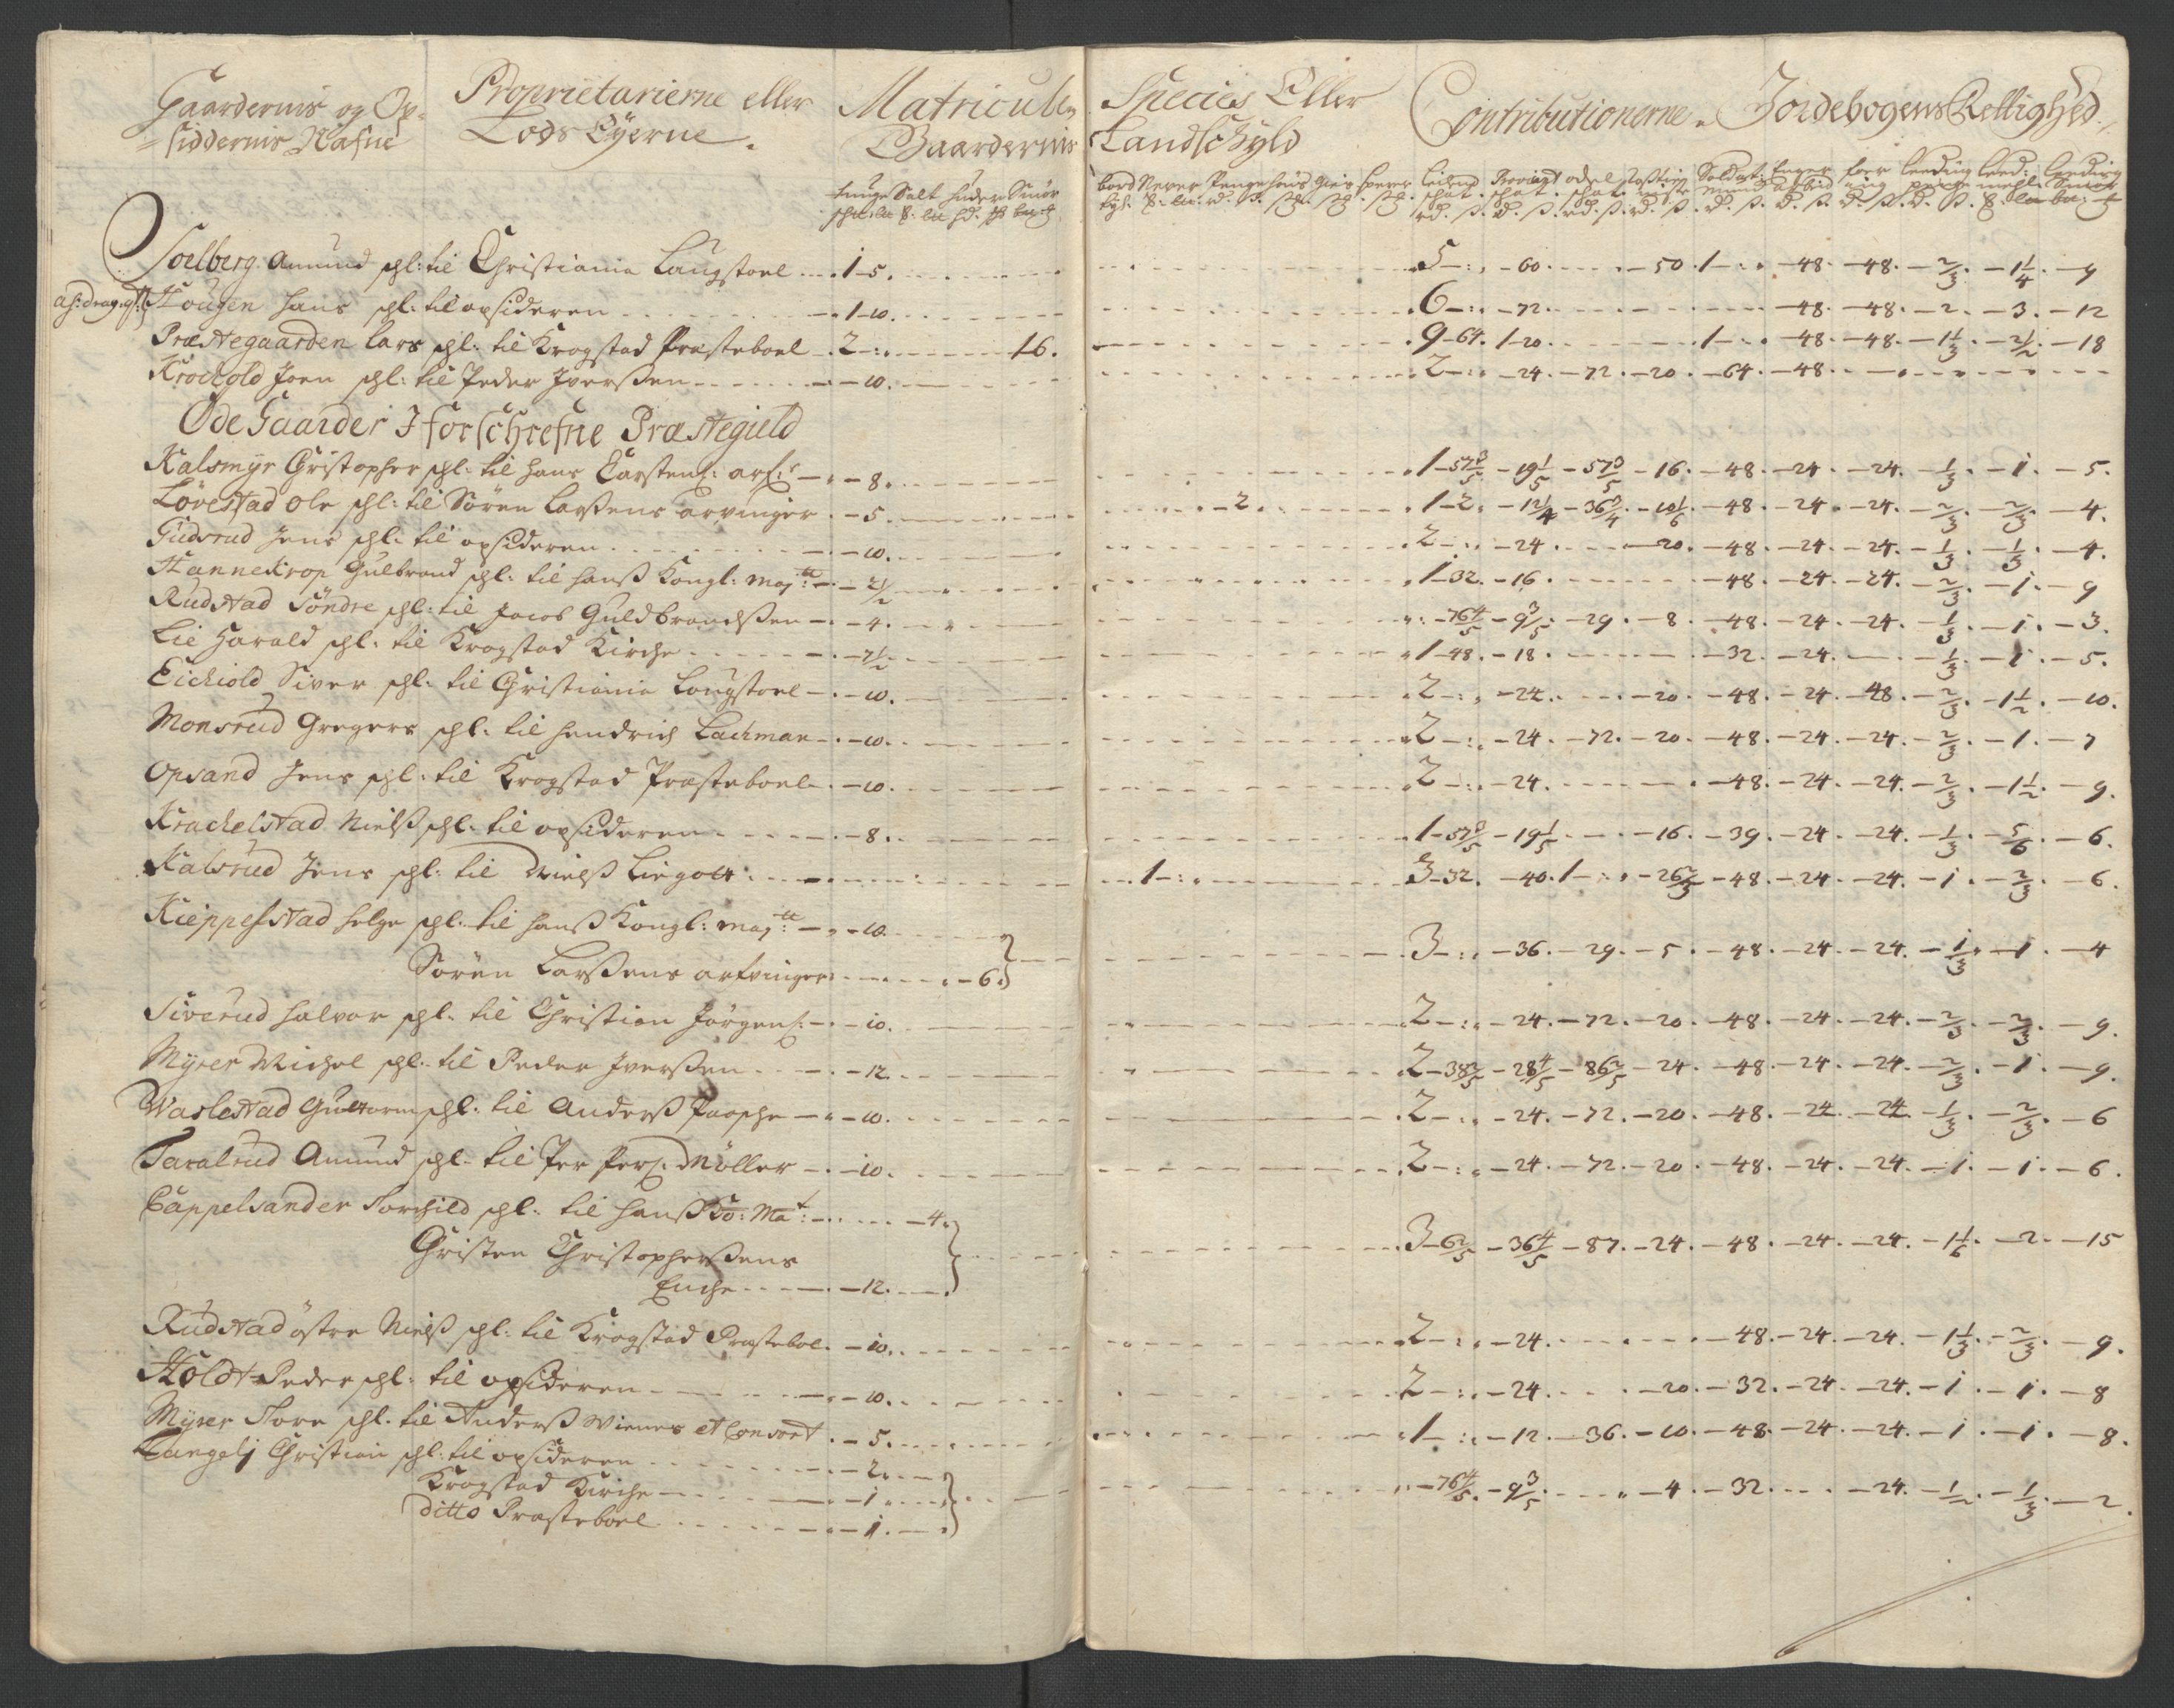 Gaardernis og Op-
siddernis Nafne
Proprietarierne eller
Lods Eÿerne.
Matriculen
Gaardernis
Species Eller
Landschÿld
Contributionerne.
Jordebogens Rettighed.
tunge Salt huder Smör
Soelberg Amund schl: til Christiania Laugstoel 1-5. 5-:, -60. -50. 1-:, -48. -48. -2/3. -1 1/4. -9
Hougen hans schl: til opsideren 1-10. 6-:, -72. -48. -48. -2. -3. -12
Præstegaarden Lars schl: til Krogstad Præsteboel 2-:, 16. 9-64. 1-20. 1-:, -48. -48. -1 1/3. -2 1/2. -18
Krockold Joen schl: til Peder Iverßen -10. 2-:, -24. -72. -20. -64. -48.
Øde Gaarder I forschrefne Præstegield
Kalsmÿr Christopher schl: til hans Carstenß: arf: -8. 1-57 3/5 -19 1/5 -57 3/5 -16. -48. -24. -24. -1/3. -1. -5.
Lövestad Ole schl: til Sören Larßens arvinger -5. -2. 1-2. -12 1/4 -36 3/4. -10 1/6 -48. -24. -24. -2/3. -2/3. -4.
Gudsrud Jens schl: til opsideren -10. 2-:, -24. -20. -48. -24. -24. -1/3. -1/3. -4.
Hannekrop Gulbrand schl: til hanß Kongl: maytt: -2 1/2 1-32. -16. -48. -24. -24. -2/3. -1. -9
Rudstad Söndre schl: til Jacob Guldbrandßen -4. -76 4/5 -9 3/5. -29. -8. -48. -24. -24. -1/3. -1. -3.
Lie Harald schl: til Krogstad Kirche -7 1/2 1-48. -18. -32. -24. -1/3. -1. -5.
Eickiold Siver schl: til Christiania Laugstoel -10. 2-:, -24. -20. -48. -24. -48. -2/3. -1 1/2. -10.
Monsrud Gregers schl: til hendrich Lachman -10. 2-:, -24. -72. -20. -48. -24. -24. -2/3. -1. -7
Opsand Jens schl: til Krogstad Præsteboel -10. 2-:, -24. -48. -24. -24. -2/3. -1 1/2. -9.
Krackelstad Nielß schl: til opsideren -8. 1-57 3/5 -19 1/5 -16. -39. -24. -24. -1/3. -5/6. -6.
Kalsrud Jens schl: til Nielß Liegolt: 1-:, 3-32. -40. 1-:, -26 2/3 -48. -24. -24. -1. -2/3. -6.
Kieppestad helge schl: til hanß Kongl: maytt: -10.
Sören Larßens arfvinger -6. 3-:, -36. -29. -5. -48. -24. -24. -1/3. -1. -4
Siverud halvor schl: til Christian Jörgenß: -10. 2-:, -24. -72. -20. -48. -24. -24. -2/3. -2/3. -9.
Mÿrer Michel schl: til Peder Iverßen -12. 2-38 2/5 -28 4/5 -86 2/5 -24. -48. -24. -24. -2/3. -1. -9.
Waslestad Guttorm schl: til Anderß Paasche -10. 2-:, -24. -72. -20. -48. -24. -24. -1/3. -2/3. -6
Taralrud Amund schl: til Per Perß: Möller -10. 2-:, -24. -72. -20. -48. -24. -24. -1. -1. -6.
Cappelsander Torchild schl: til hanß Ko: Ma:t -4.
Christen Christopherßens
Enche -12. 3-6 2/5 -36 4/5 -87. -24. -48. -24. -24. -1 1/6. -2. -15
Rudstad östre Nielß schl: til Krogstad Præsteboel. -10. 2-:, -24. -48. -24. -24. -1 1/3. -2/3. -9.
Holdt Peder schl: til opsideren -10. 2-:, -24. -20. -32. -24. -24. -1. -1. -8
Mÿrer Tore schl: til Anderß Wienes et Consort -5. 1-:, -12. -36. -10. -48. -24. -24. -1. -1. -8.
Langeli Christian schl: til opsideren -2.
Krogstad Kirche -1. -76 4/5. -9 3/5. -4. -32. -24. -1/2. -1/3. -2.
ditto Præsteboel -1.